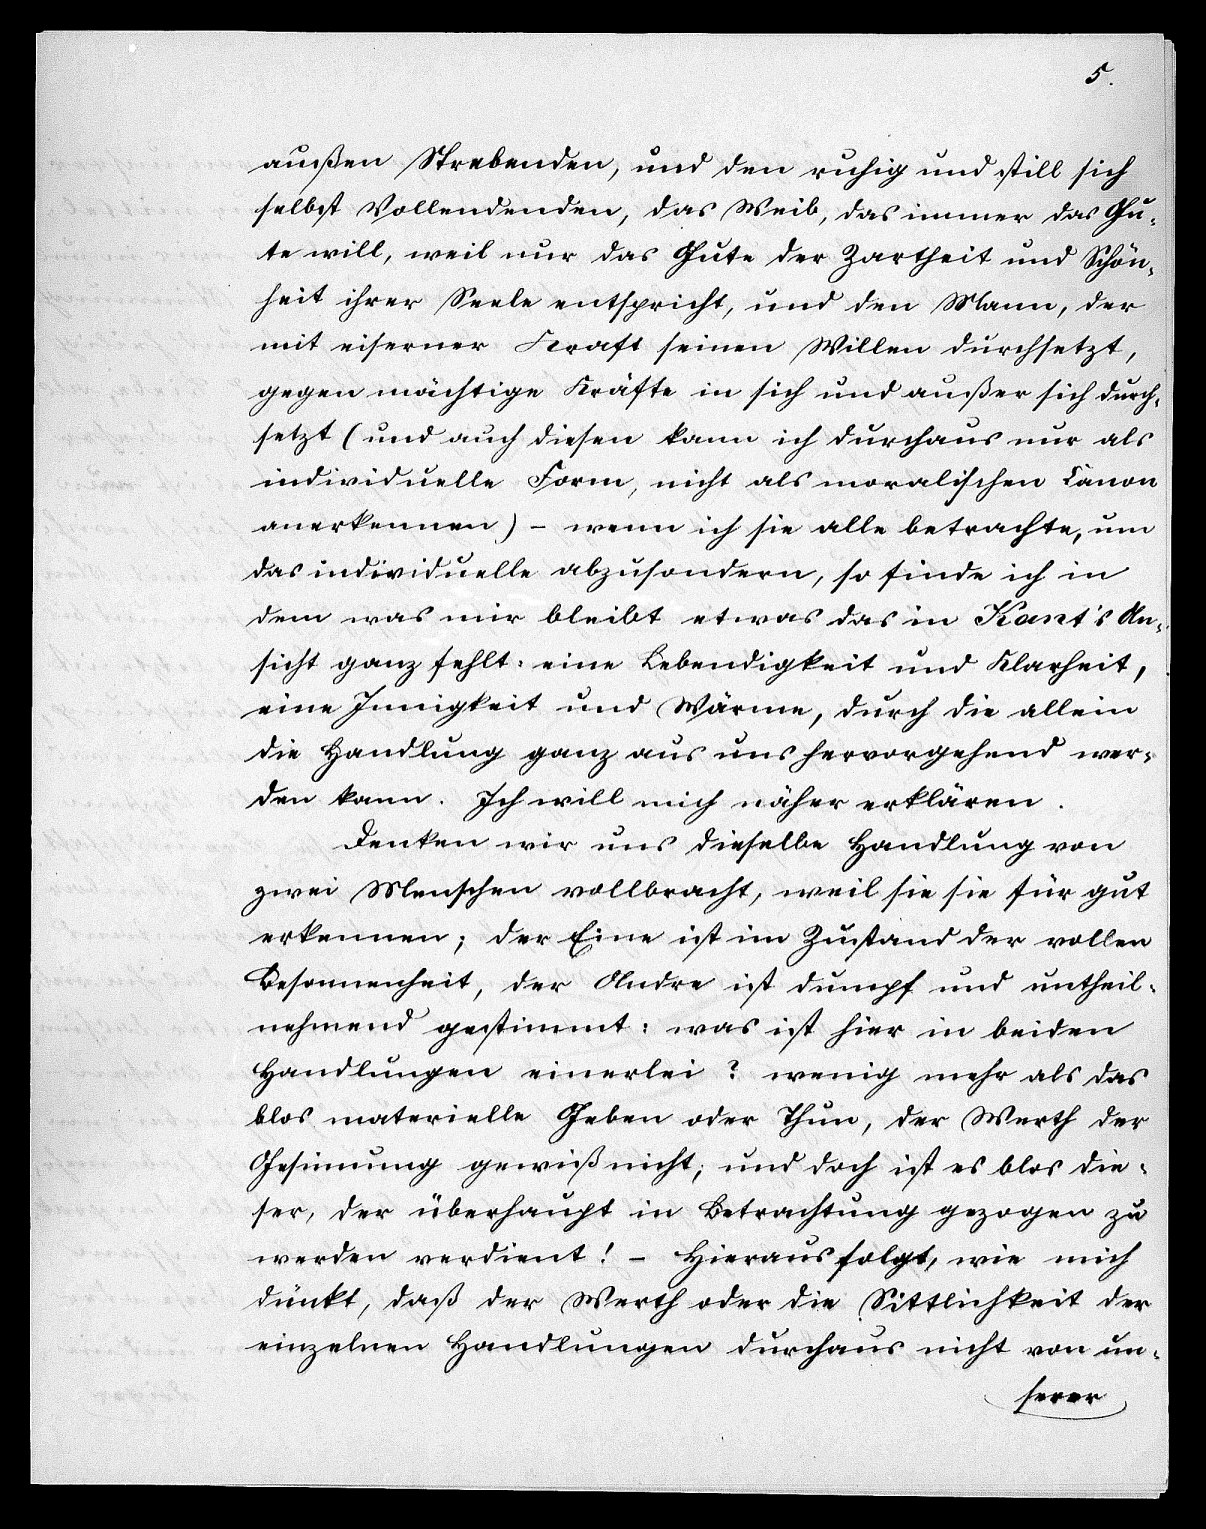 5.
außen Strebenden, und den ruhig und still sich
selbst Vollendenden, das Weib, das immer das Gu-
te will, weil nur das Gute der Zartheit und Schön-
heit ihrer Seele entspricht, und den Mann, der
mit eiserner Kraft seinen Willen durchsetzt,
gegen mächtige Kräfte in sich und außer sich durch-
setzt (und auch diesen kann ich durchaus nur als
individuelle Form, nicht als moralischen Canon
anerkennen) – wenn ich sie alle betrachte, um
das individuelle abzusondern, so finde ich in
dem was mir bleibt etwas das in Kant's An-
sicht ganz fehlt: eine Lebendigkeit und Klarheit,
eine Innigkeit und Wärme, durch die allein
die Handlung ganz aus uns hervorgehend wer-
den kann. Ich will mich näher erklären.
Denken wir uns dieselbe Handlung von
zwei Menschen vollbracht, weil sie sie für gut
erkennen; der Eine ist im Zustand der vollen
Besonnenheit, der Andre ist dumpf und untheil-
nehmend gestimmt: was ist hier in beiden
Handlungen einerlei? wenig mehr als das
blos materielle Geben oder Thun, der Werth der
Gesinnung gewiß nicht, und doch ist es blos die-
ser, der überhaupt in Betrachtung gezogen zu
werden verdient! – Hieraus folgt, wie mich
dünkt, daß der Werth oder die Sittlichkeit der
einzelnen Handlungen durchaus nicht von un-
serer